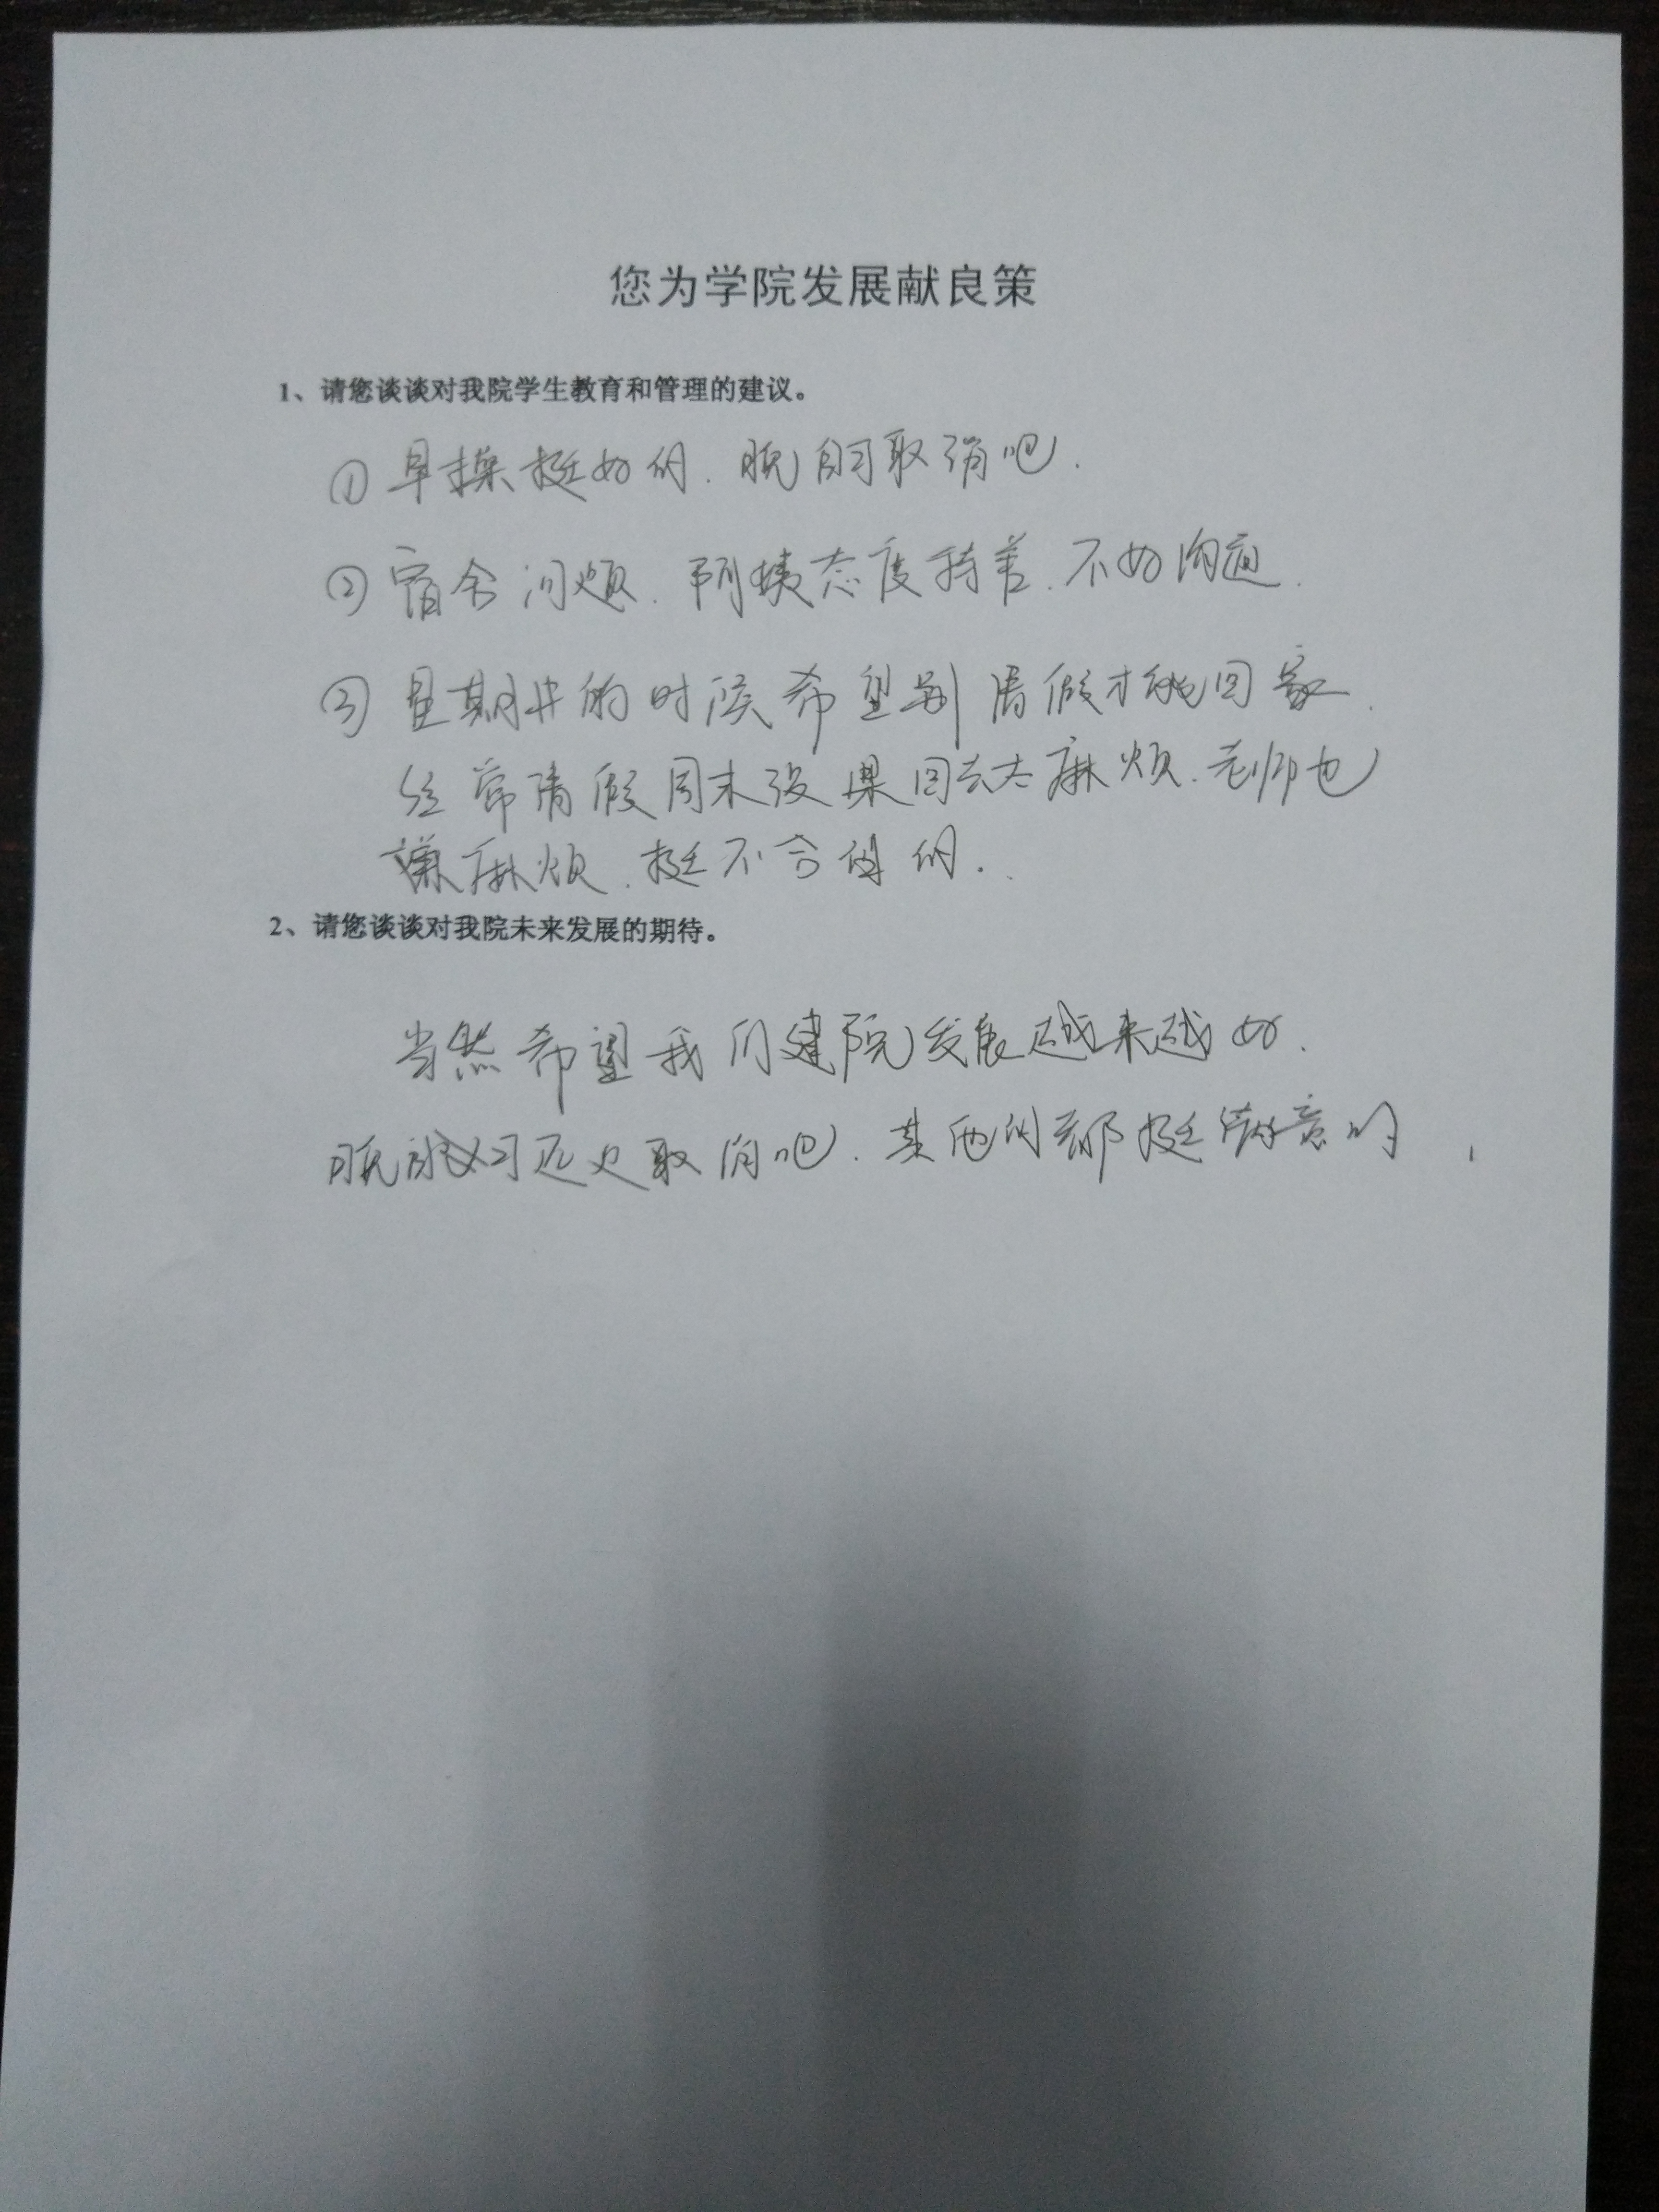 您为学院发展献良策
1、请您谈谈对我院学生教育和管理的建议。
① 早操挺好的.晚自习取消吧.
② 宿舍问题.阿姨态度特差.不好沟通.
③ 星期五的时候希望别请假才能回家.
经常请假周末没课回去太麻烦.老师也
嫌麻烦.挺不合适的.
2、请您谈谈对我院未来发展的期待。
当然希望我们建院发展越来越好.
晚习还是取消吧.其他的都挺满意的